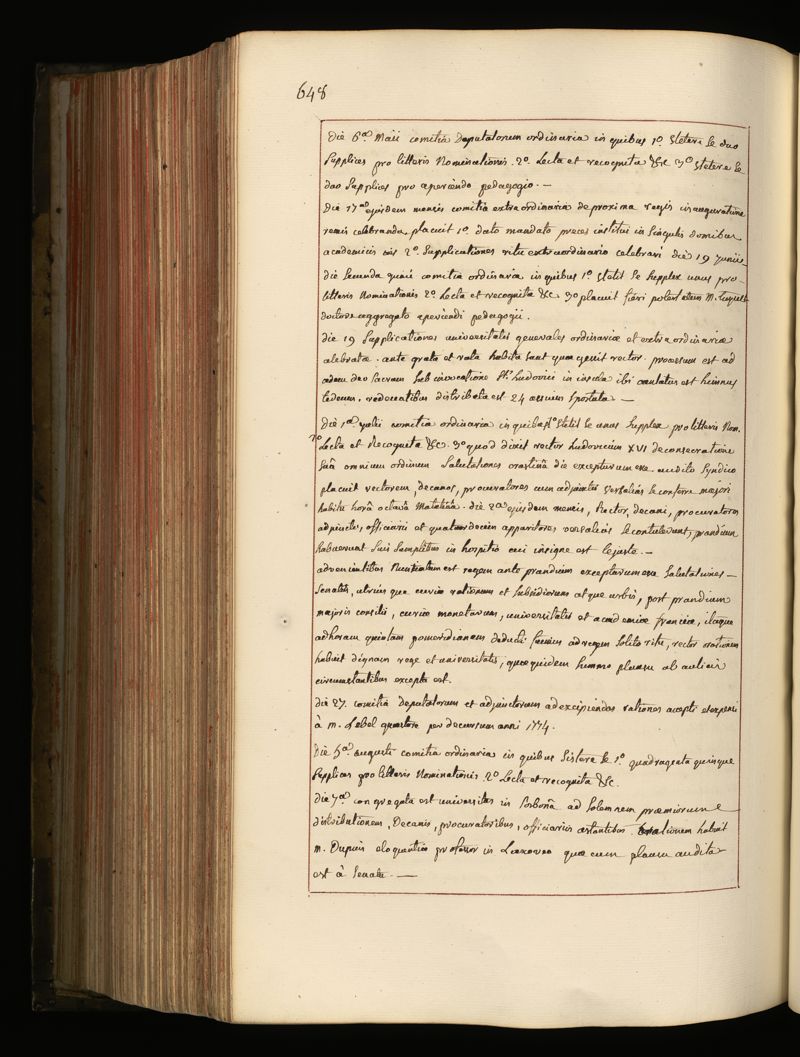 648
Die 6ª. Maii comitia deputatorum ordinaria in quibus 1º. Stetere se duo
Supplices pro litteris Nominationis. 2º. Lecta et recognita &c 3º Stetere se
duo Supplices pro aperiendo pedagogio. —
Die 17ª ejusdem mensis comitia extraordinaria de proxima regis inauguratione
remis celebranda, placuit 1º. dato mandato preces institui in Singulis domibus
academicis 2º. Supplicationes ritu extraordinario celebrari die 19 junii.
die Secunda comitia ordinaria in quibus 1º. Stetit Se Supplex unus pro
litteris Nominationis 2º. Lecta et recognita &c 3º placuit fieri potestatem M.
doctore aggregato aperiendi pedagogii.
die 19 Supplicationes universitatis generales ordinariæ et extraordinariæ
celebratæ. ante grata et rata habita sunt quæ gessit rector. processum est ad
ædem duo Sacram Sub invocatione Sti. Ludovici in insula ibi cantatus est himnus
tedeum. redeuntibus distributa est 24 assium Sportula —
Die 1ª. julii comitia ordinaria in quibus 1º Stetit Se unus Supplex pro litteris Nom.
2º Lecta et Recognita &c. 3º quod dixit rector Ludovicum XVI de consecratione
Suâ omnium ordinum Salutationes crastinâ die excepturum esse. audito Syndico
placuit rectorem, decanos, procuratores cum adjunctis versalias se conferre majori
habitu horâ octavâ Matutinâ. die 2ª ejusdem mensis, Rector, decani, procuratores
adjuncti, officiarii et quatuordecim apparitores versalias Se contulerunt, prandium
habuerunt Suis Sumptibus in hospitio cui insigne est le juste. —
advenientibus Nuntiatum est regem ante prandium excepturum esse Salutationes —
Senatûs, utriusque curiæ rationum et Subsidiorum atque urbis, post prandium
majoris consilii, curiæ monetarum, universitatis et academiæ franciæ, itaque
ad horam quintam pomeridianam deducti fuimus ad regem Solito ritu, rector orationem
habuit dignam rege et universitate, quæ quidem Summo plausu ab aulicis
circumstantibus excepta est.
die 27. comitia deputatorum et adjunctorum ad excipiendas rationes accepti et expensi
à M. Lebel quæstore per decursum anni 1774.
Die 5ª. augusti comitia ordinaria in quibus Sistere Se 1º. quadraginta quinque
Supplices pro litteris Nominationis. 2º Lecta et recognita &c.
die 7ª. congregata est universitas in Sorbonâ ad Solemnem præmiorum
distributionem, Decanis, procuratoribus, officiariis astantibus. Orationem habuit
M. Dupuis eloquentiæ professor in Lexoveo quæ cum plausu audita
est à Senatu. —